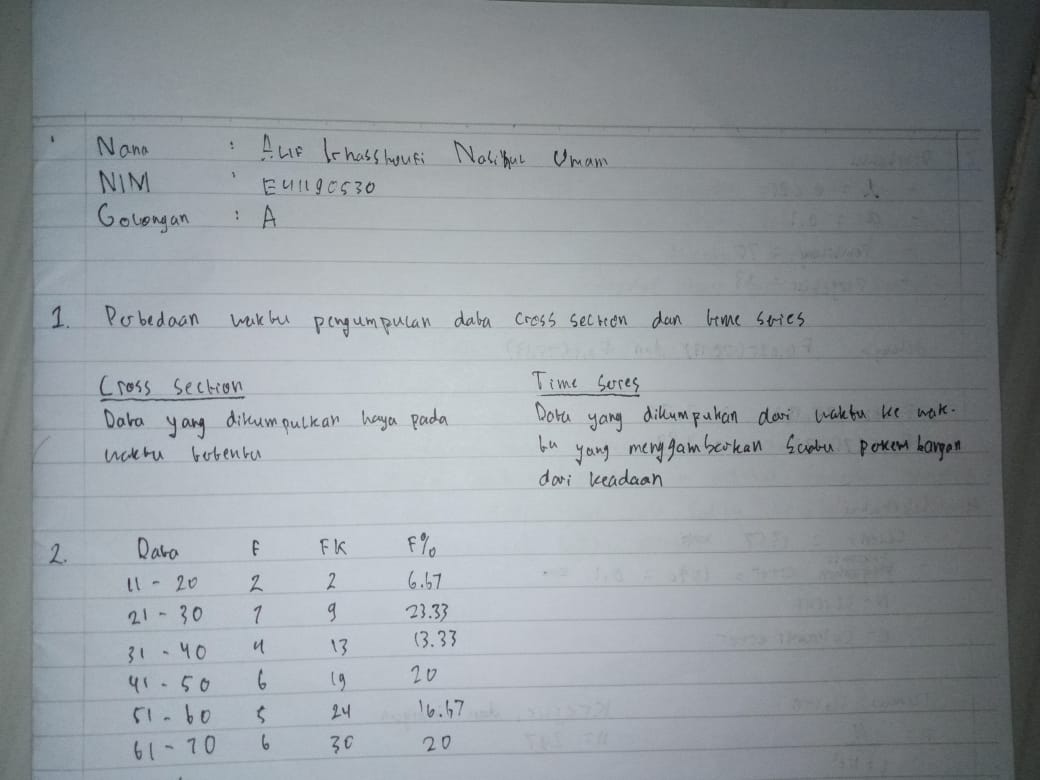 Nama : Alif Ikhasshoufi Nasikhul Umam
NIM : E41190530
Golongan : A
1. Perbedaan waktu pengumpulan data cross section dan time series
Cross Section
Data yang dikumpulkan haya pada
waktu tertentu
Time Series
Data yang dikumpulkan dari waktu ke wak-
tu yang menggambarkan suatu perkembangan
dari keadaan
2. Data F FK F%
11 - 20 2 2 6.67
21 - 30 7 9 23.33
31 - 40 4 13 13.33
41 - 50 6 19 20
51 - 60 5 24 16.67
61 - 70 6 30 20